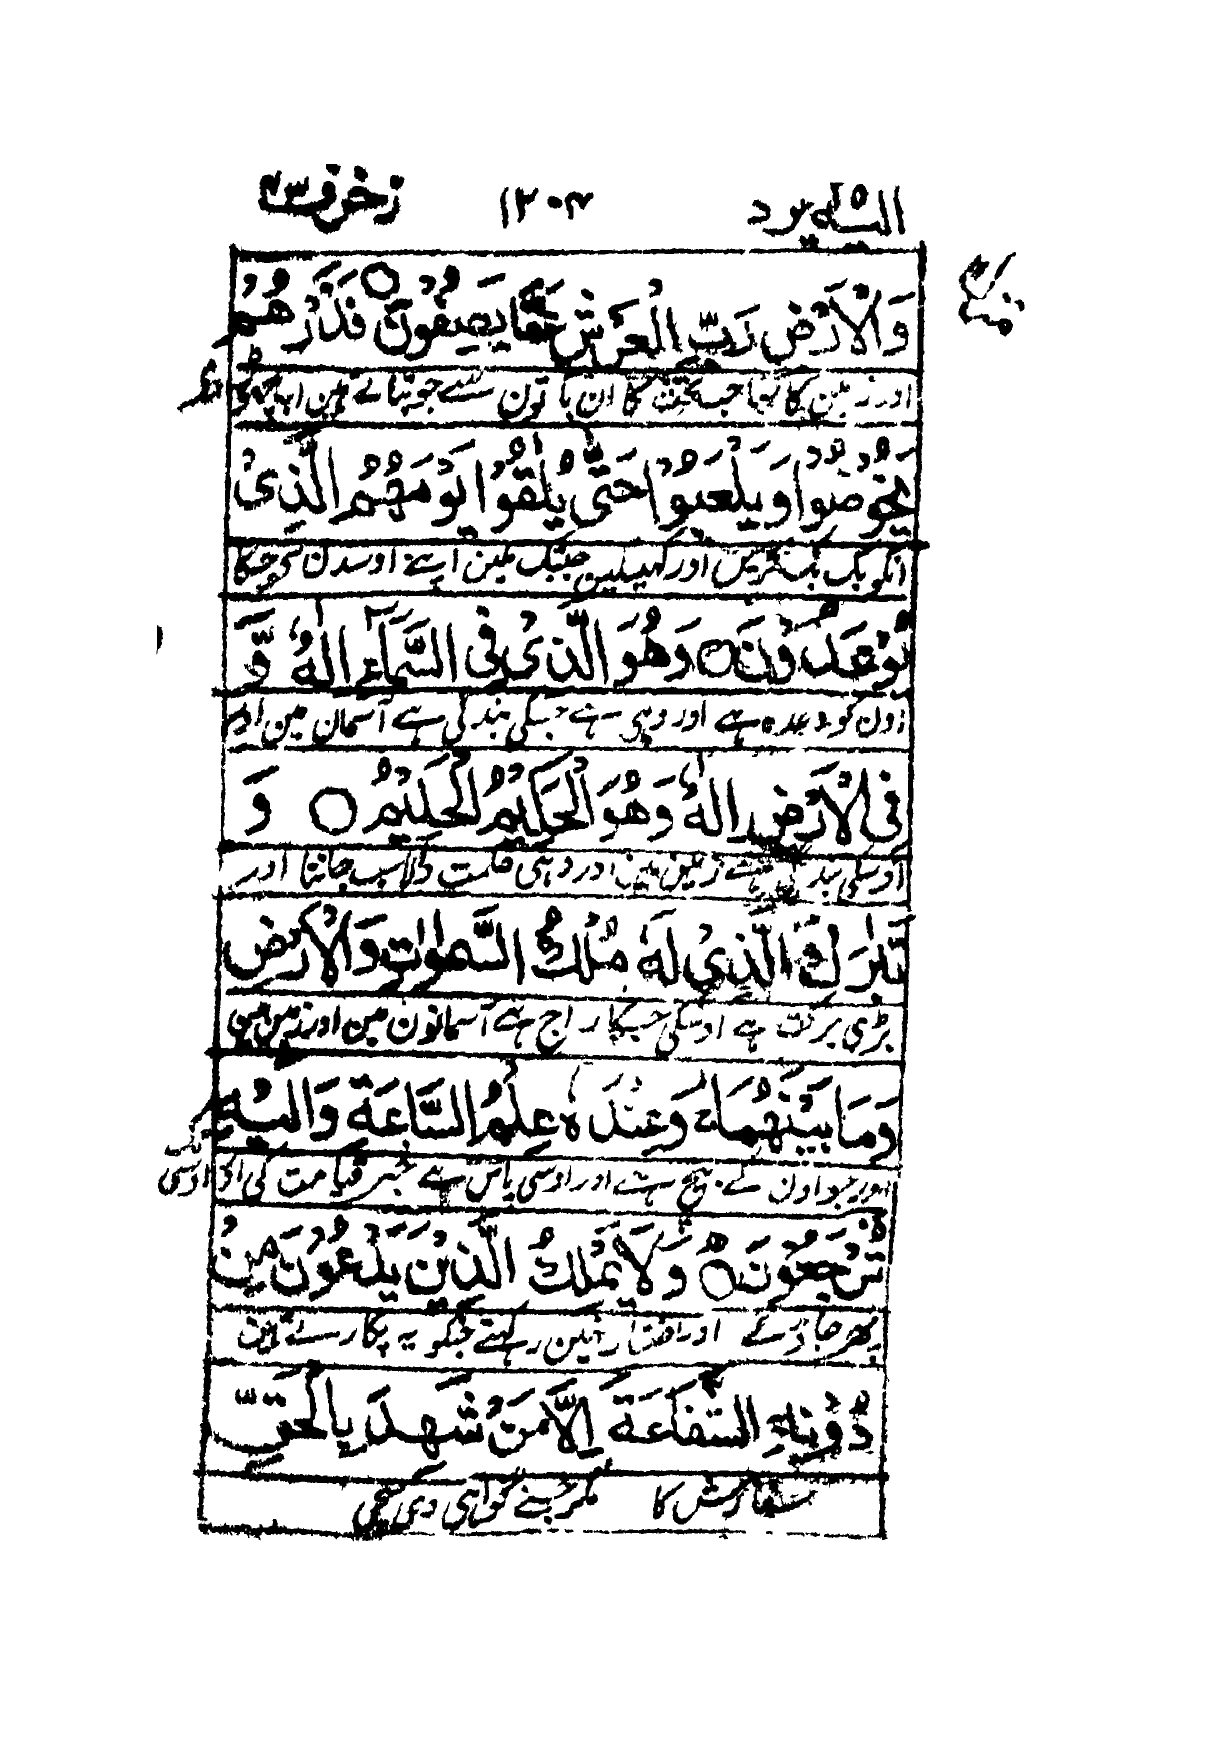 الیه یرد ١٢٠٤ زخرف ٤٣
وَالْاَرْضِ رَبِّ الْعَرْشِ عَمَّا يَصِفُوْنَ ○ فَذَرْهُمْ
اور زمین کا تخت کا ان با تون سے جو بتاتے ہین اب چھوڑ
يَخُوْضُوْا وَيَلْعَبُوْا حَتّٰى يُلٰقُوْا يَوْمَهُمُ الَّذِىْ
انکو بک بک کرین اور کھیلین جبتک ملین اپنے اوسدن سے جسکا
يُوْعَدُوْنَ ○ وَهُوَ الَّذِىْ فِى السَّمَآءِ اِلٰهٌ وَّ
اون کو وعدہ ہے اور وہی ہے جسکی بندگی ہے آسمان مین اور
فِى الْاَرْضِ اِلٰهٌ وَهُوَ الْحَكِيْمُ الْعَلِيْمُ ○ وَ
اوسکی بندگی ہے زمین مین اور وہی حکمت والا سب جانتا اور
تَبٰرَكَ الَّذِىْ لَهٗ مُلْكُ السَّمٰوٰتِ وَالْاَرْضِ
بڑی برکت ہے اوسکی جسکا راج ہے آسمانون مین اور زمین مین
وَمَا بَيْنَهُمَا وَعِنْدَهٗ عِلْمُ السَّاعَةِ وَاِلَيْهِ
اور جو اون کے بیچ ہے اور اوسی پاس ہے خبر قیامت کی اور اوسی تک
تُرْجَعُوْنَ ○ وَلَا يَمْلِكُ الَّذِيْنَ يَدْعُوْنَ مِنْ
پھر جاؤگے اور اختیار نہین رکھتے جنکو یہ پکارتے ہین
دُوْنِهِ الشَّفَاعَةَ اِلَّا مَنْ شَهِدَ بِالْحَقِّ
سفارش کا مگر جسنے گواہی دی سچی